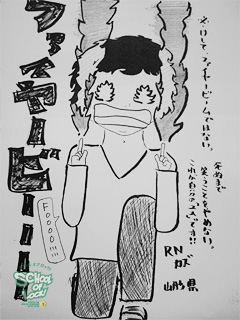 ファイヤービーー
決して、ファイヤービームではない。
死ぬまで
笑うことをやめない。
これが自分のユメです!!
FOOOOO!!!
RN
カズ
山形県
SCHOOL
OF
LOCK!